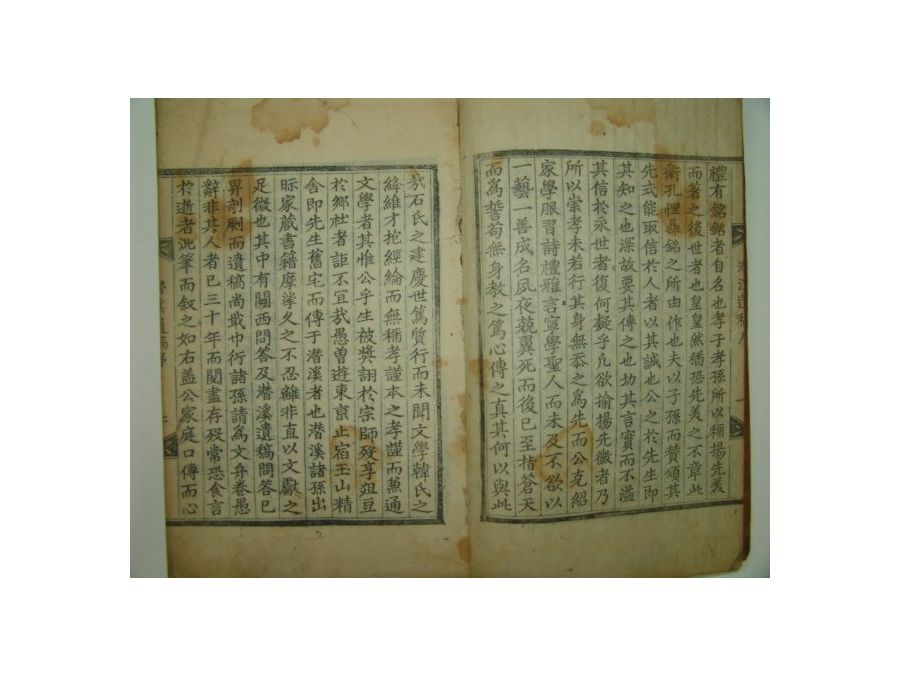 潛溪遺稿序
禮有銘銘者自名也孝子孝孫所以稱揚先美
而著之後世者也皇皇然猶恐先美之不章此
衛孔悝鼎銘之所由作也夫以子孫而贊頌其
先式能取信於人者以其誠也公之於先生即
其知之也深故要其傳之也切其言實而不濫
其信於永世者復何疑乎凡欲揄揚先徽者乃
所以崇孝未若行其身無忝之爲先而公克紹
家學服習詩禮雅言寧學聖人而未及不欲以
一藝一善成名夙夜兢翼死而後已至指蒼天
而爲誓苟無身教之篤心傳之眞其何以與此
哉石氏之建慶世篤質行而未聞文學韓氏之
絳維才挖經綸而無稱孝謹本之孝謹而兼通
文學者其惟公乎生被奬詡於宗師歿享俎豆
於鄉社者詎不冝哉愚曾遊東京止宿玉山精
舍即先生舊宅而傳于潛溪者也潛溪諸孫出
眎家藏書籍摩挲久之不忍離非直以文獻之
足徵也其中有關西問答及潛溪遺稿問答已
畀剞劂而遺稿尚戢巾衍諸孫請爲文弁卷愚
辭非其人者已三十年而閱盡存歿常恐食言
於逝者泚筆而叙之如右盖公家庭口傳而心
潛溪遺稿序
二